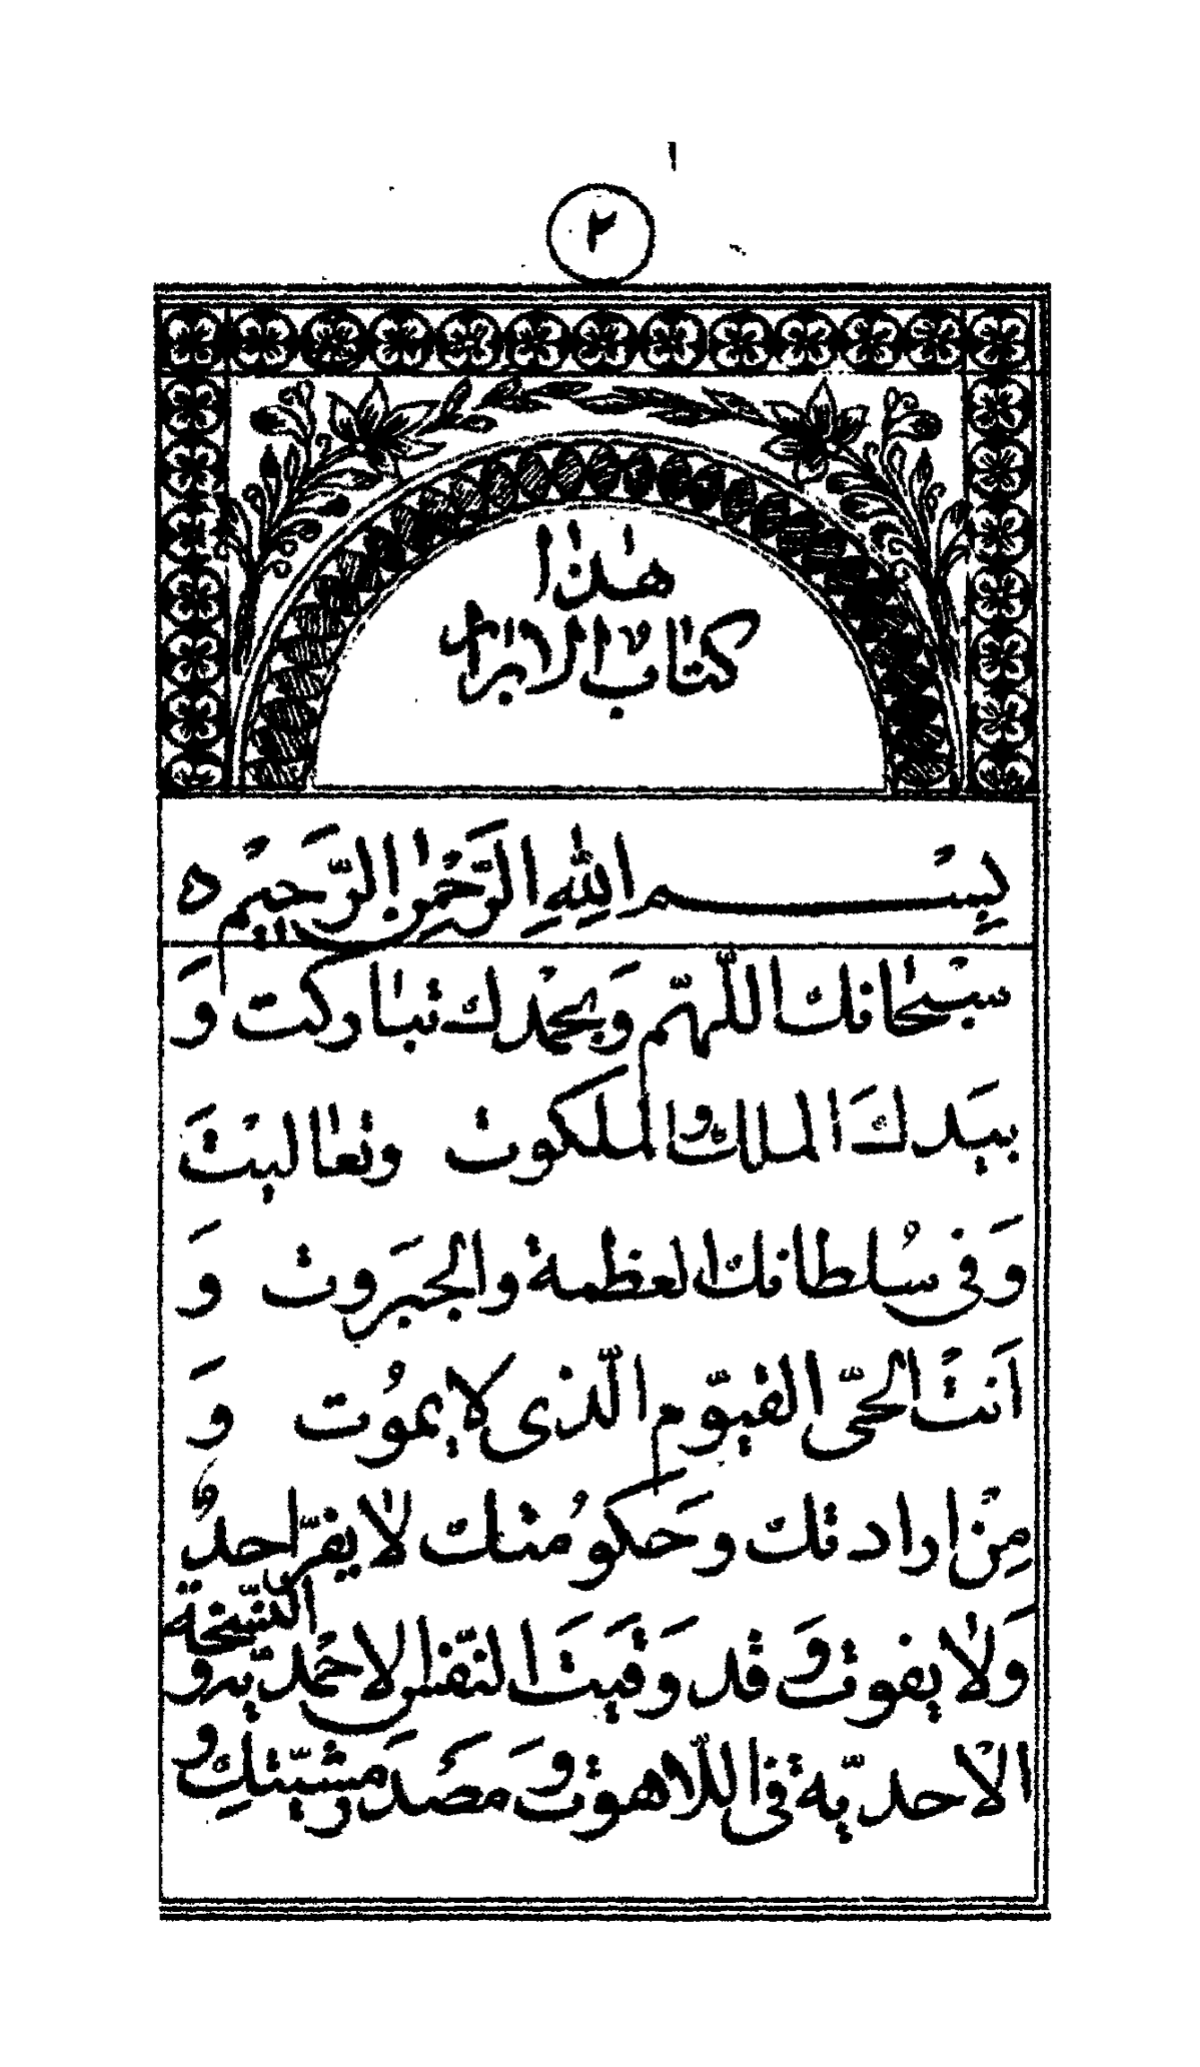 ٢
هٰذا
كتابُ الابرار
بِسْمِ اللّٰهِ الرَّحْمٰنِ الرَّحِيْمِ ه
سبحانك اللّهمّ وَبحمدك تبارکت وَ
بيَدكَ الملك والملكوت وتعاليت
وَفى سُلطانك العظمة والجبَروت وَ
اَنتَ الحىّ القيّوم الّذى لا يموُت وَ
مِنْ ارادتك وحَكومُتك لا يفرّ احدٌ
وَلا يفوت وَقد وَقيتَ النّفس الاحمديّه و
النّسخة
الاحديّة فى اللّاهوت وَمصَدَر مشيّتكِ و